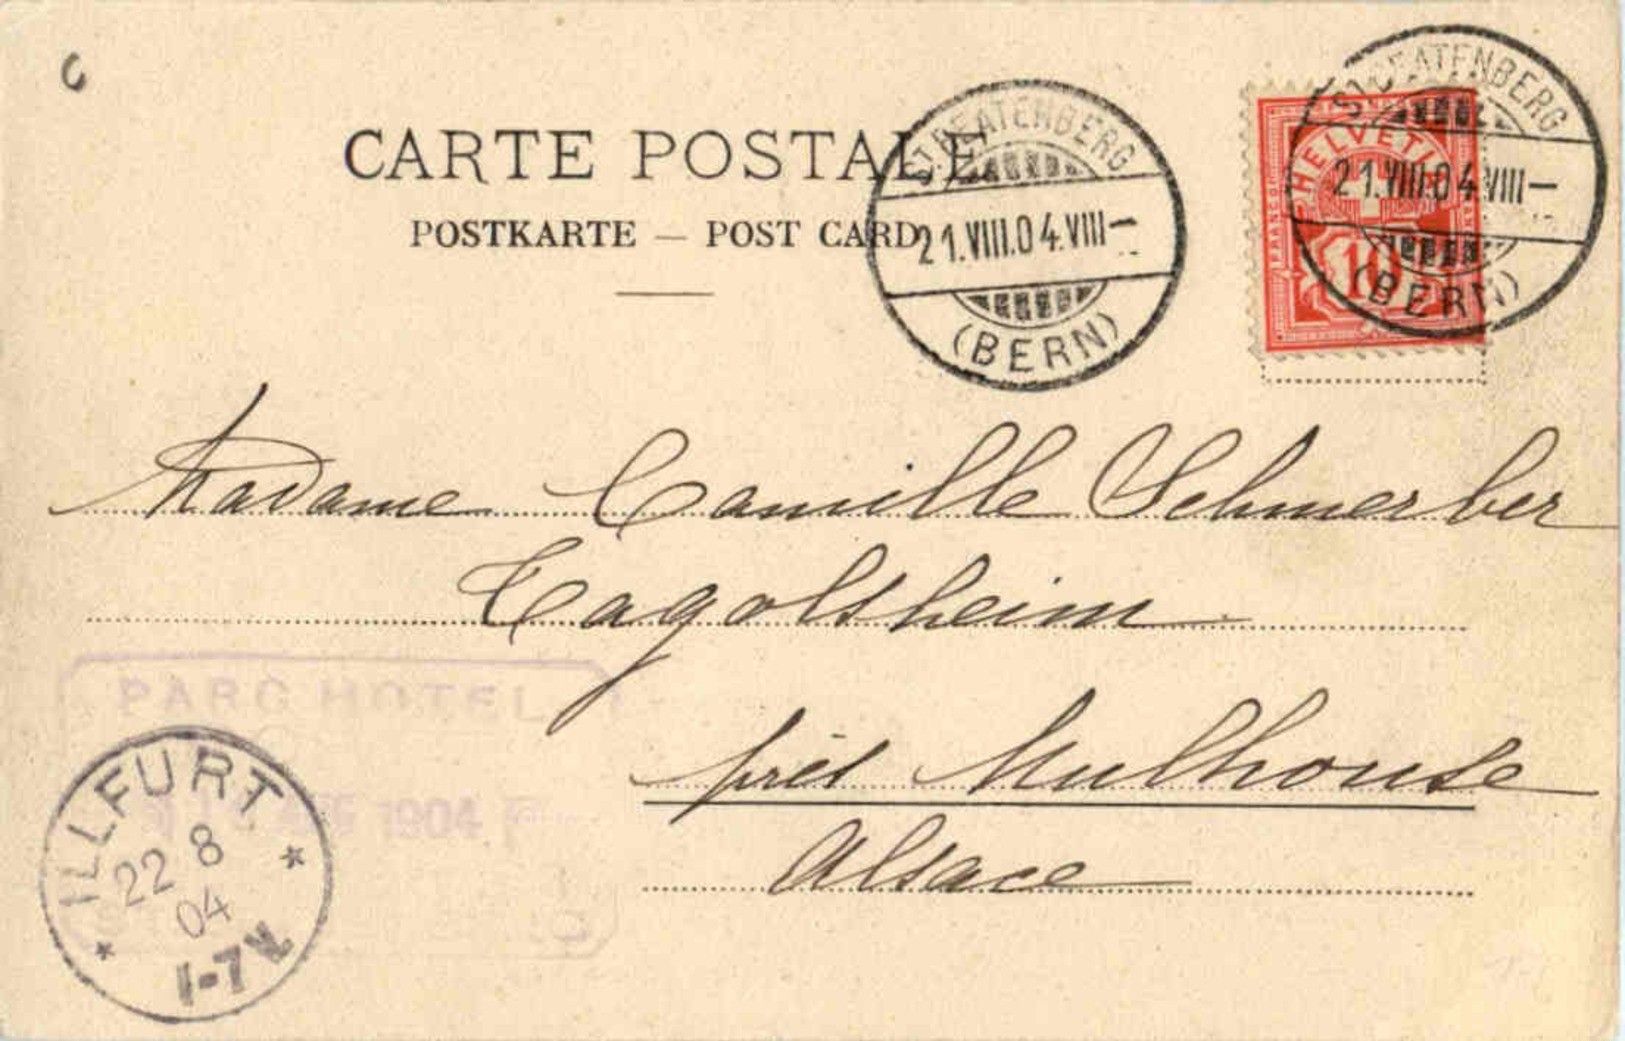 CARTE POSTALE
POSTKARTE — POST CARD
ST. BEATENBERG
21.VIII.04.VIII—
(BERN)
ST. BEATENBERG
21.VIII.04.VIII—
(BERN)
HELVETIA
FRANCO
10
Madame Camille Schmerber
Tagolsheim
près Mulhouse
Alsace
PARC HOTEL
1904
ILLFURT
22 8
04